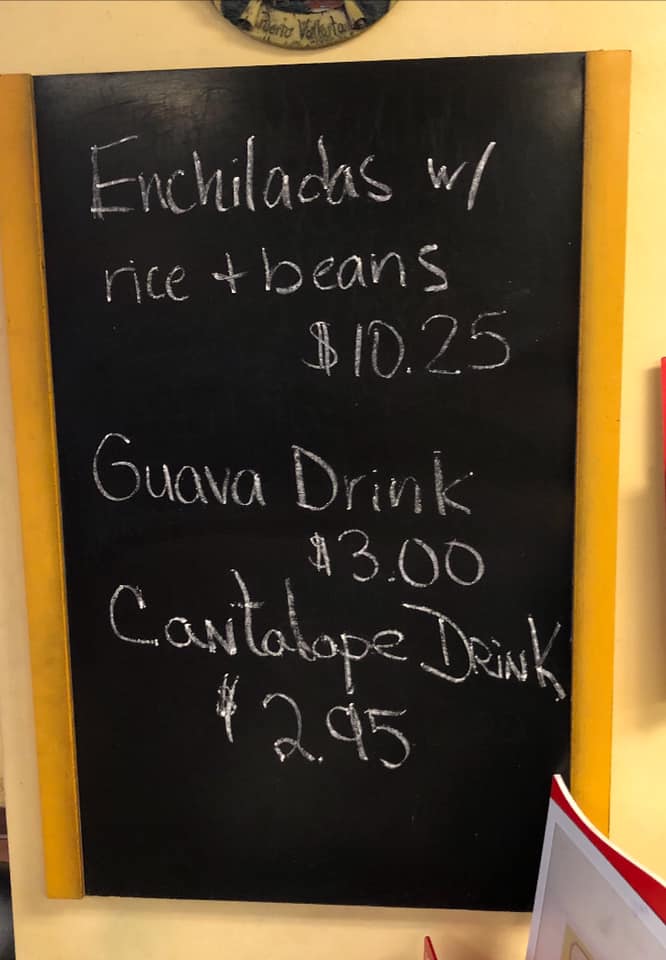 Puerto Vallarta
Enchiladas w/
rice + beans
$10.25
Guava Drink
$3.00
Cantalope Drink
$2.95